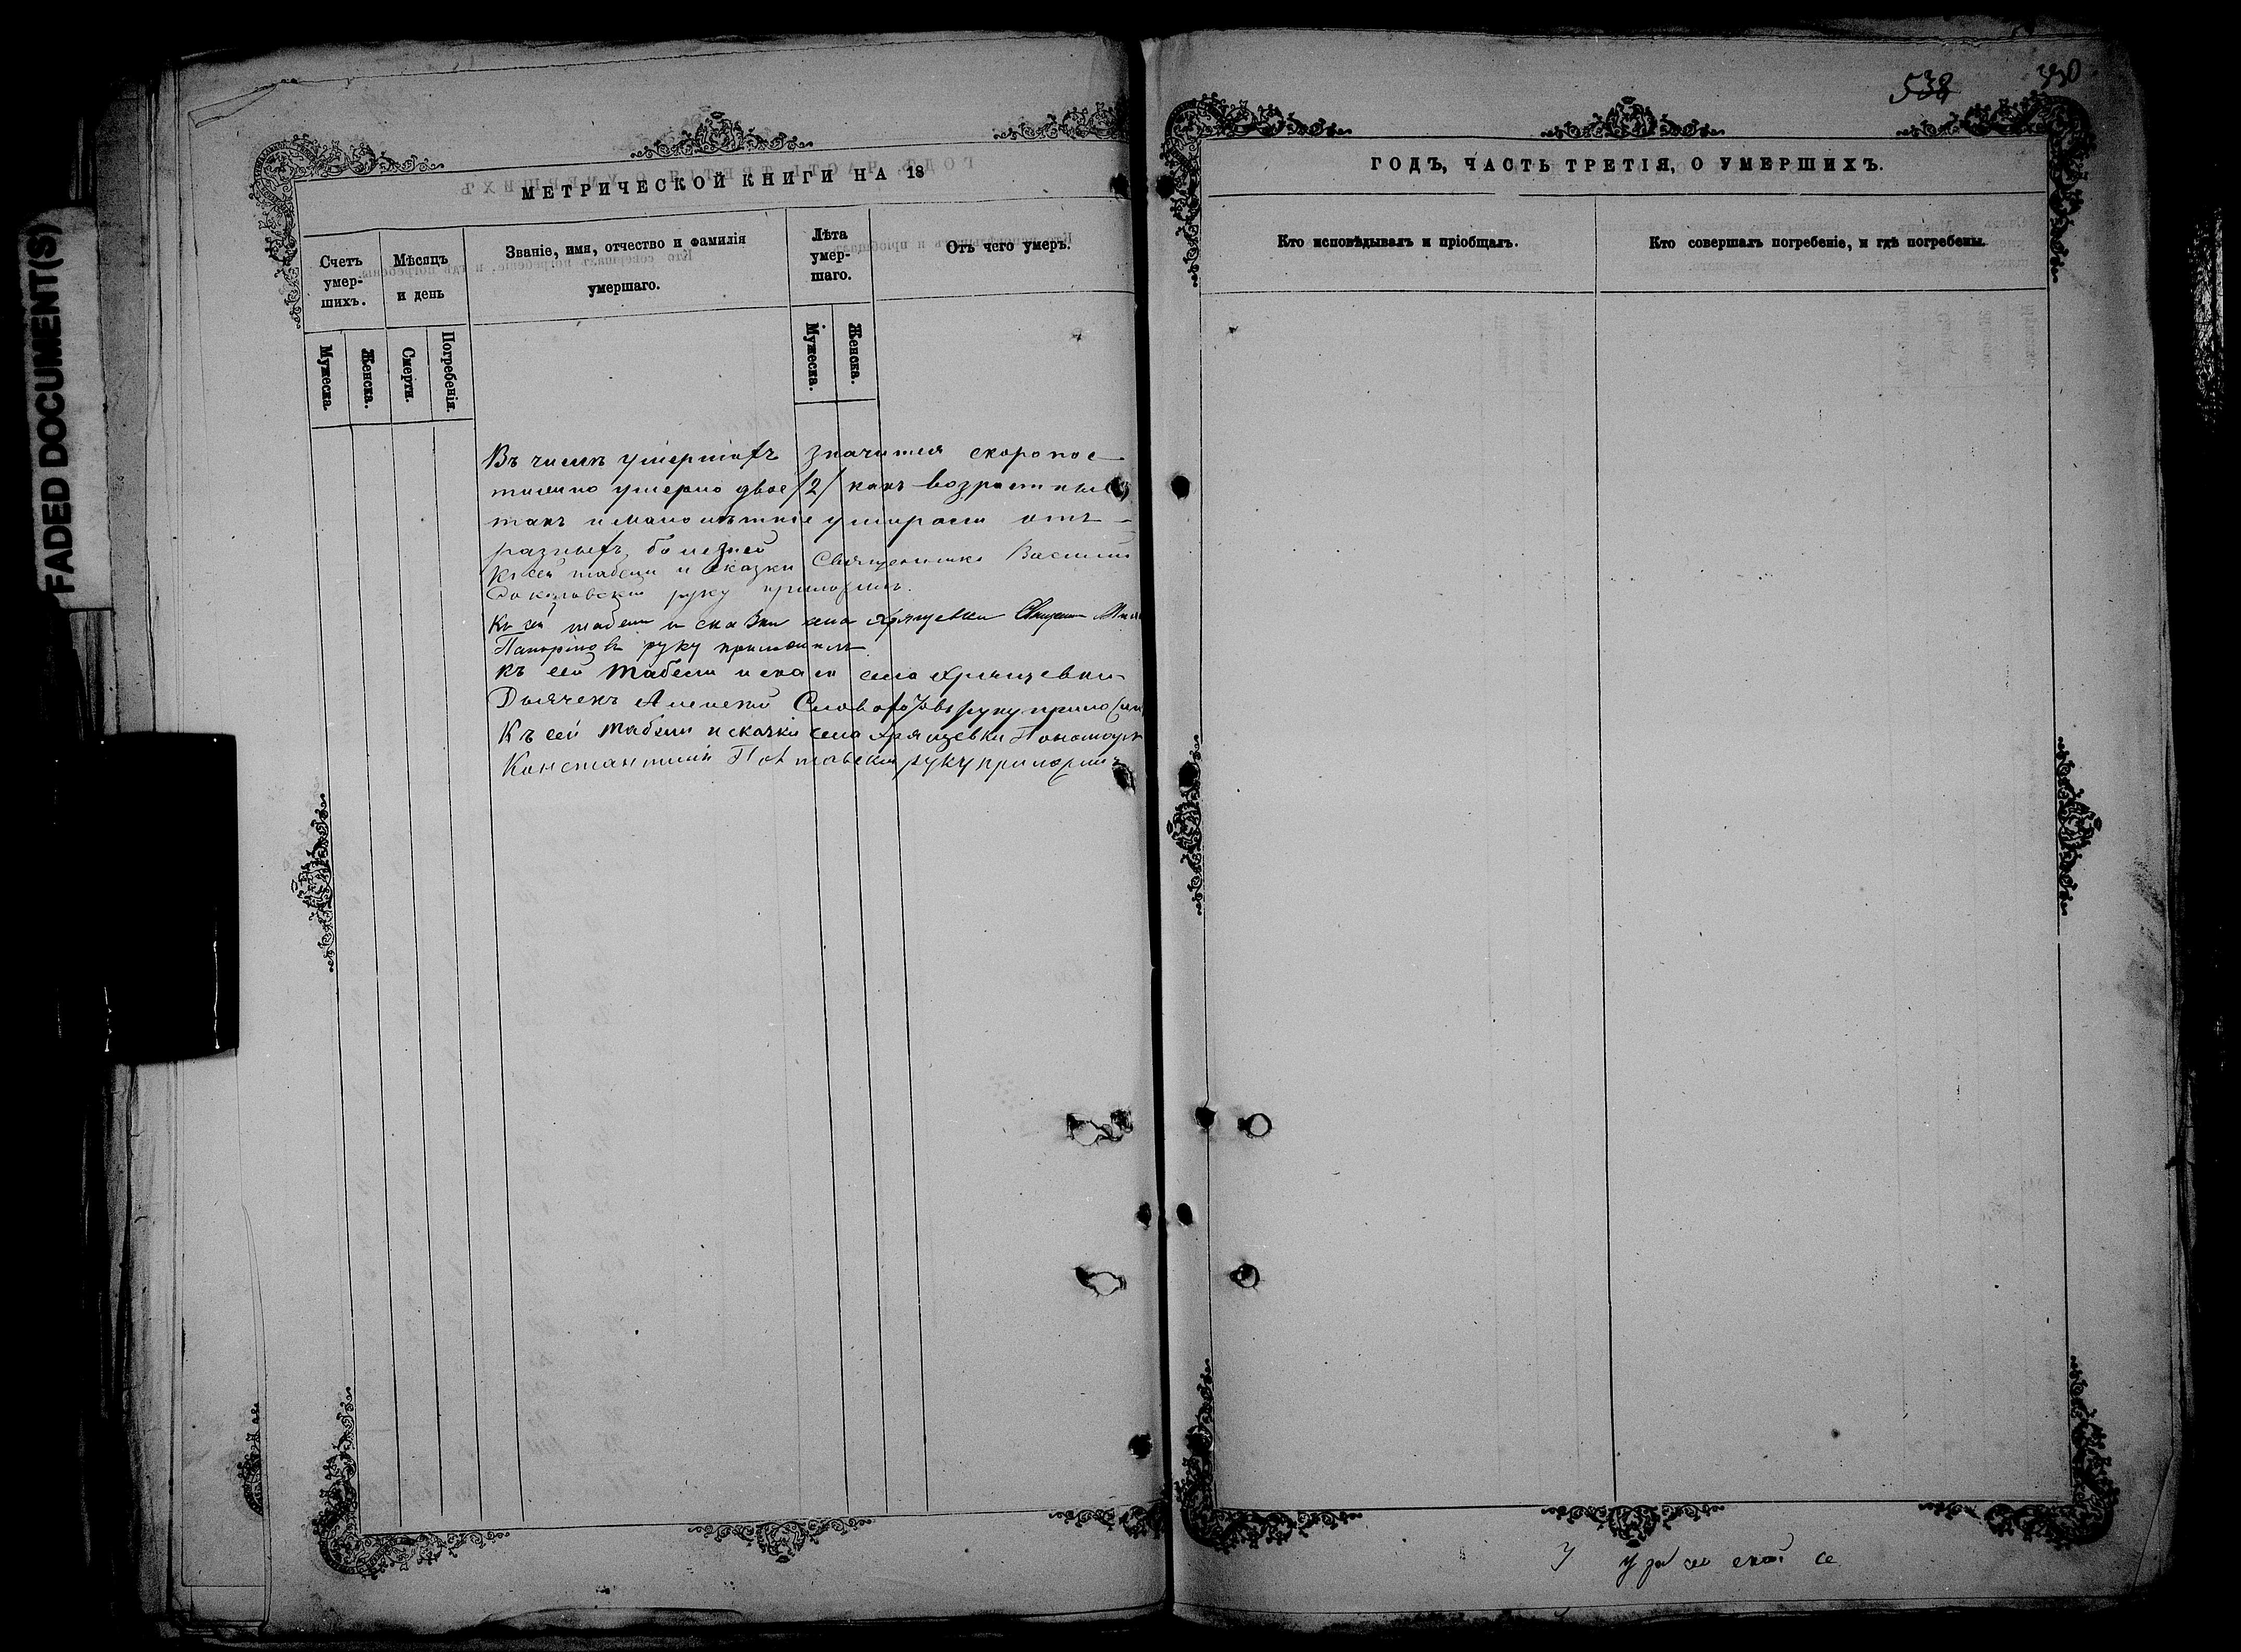 FADED DOCUMENT(S)
МЕТРИЧЕСКОЙ КНИГИ НА 18
Счетъ умер-шихъ.
Мѣсяцъ и день
Званіе, имя, отчество и фамилія умершаго.
Лѣта умер-шаго.
Отъ чего умеръ.
Мужеска.
Женска.
Смерти.
Погребенія.
Мужеска.
Женска.
Въ числѣ умершихъ значится скоропос-
тижно умерло двое /2/ какъ возрастные
такъ и малолѣтніе умирали отъ
разныхъ болезней
Къ сей табели и сказки Священникъ Василій
руку приложилъ.
Къ сей табели и сказки села Хрящевки Священ
руку приложилъ
Къ сей табели и сказки села Хрящевки
Дьячекъ Алексей руку приложилъ
Къ сей табели и скачки села Хрящевки Пономарь
Константинъ руку приложилъ
538
ГОДЪ, ЧАСТЬ ТРЕТІЯ, О УМЕРШИХЪ.
Кто исповѣдывалъ и пріобщалъ.
Кто совершалъ погребеніе, и гдѣ погребены.